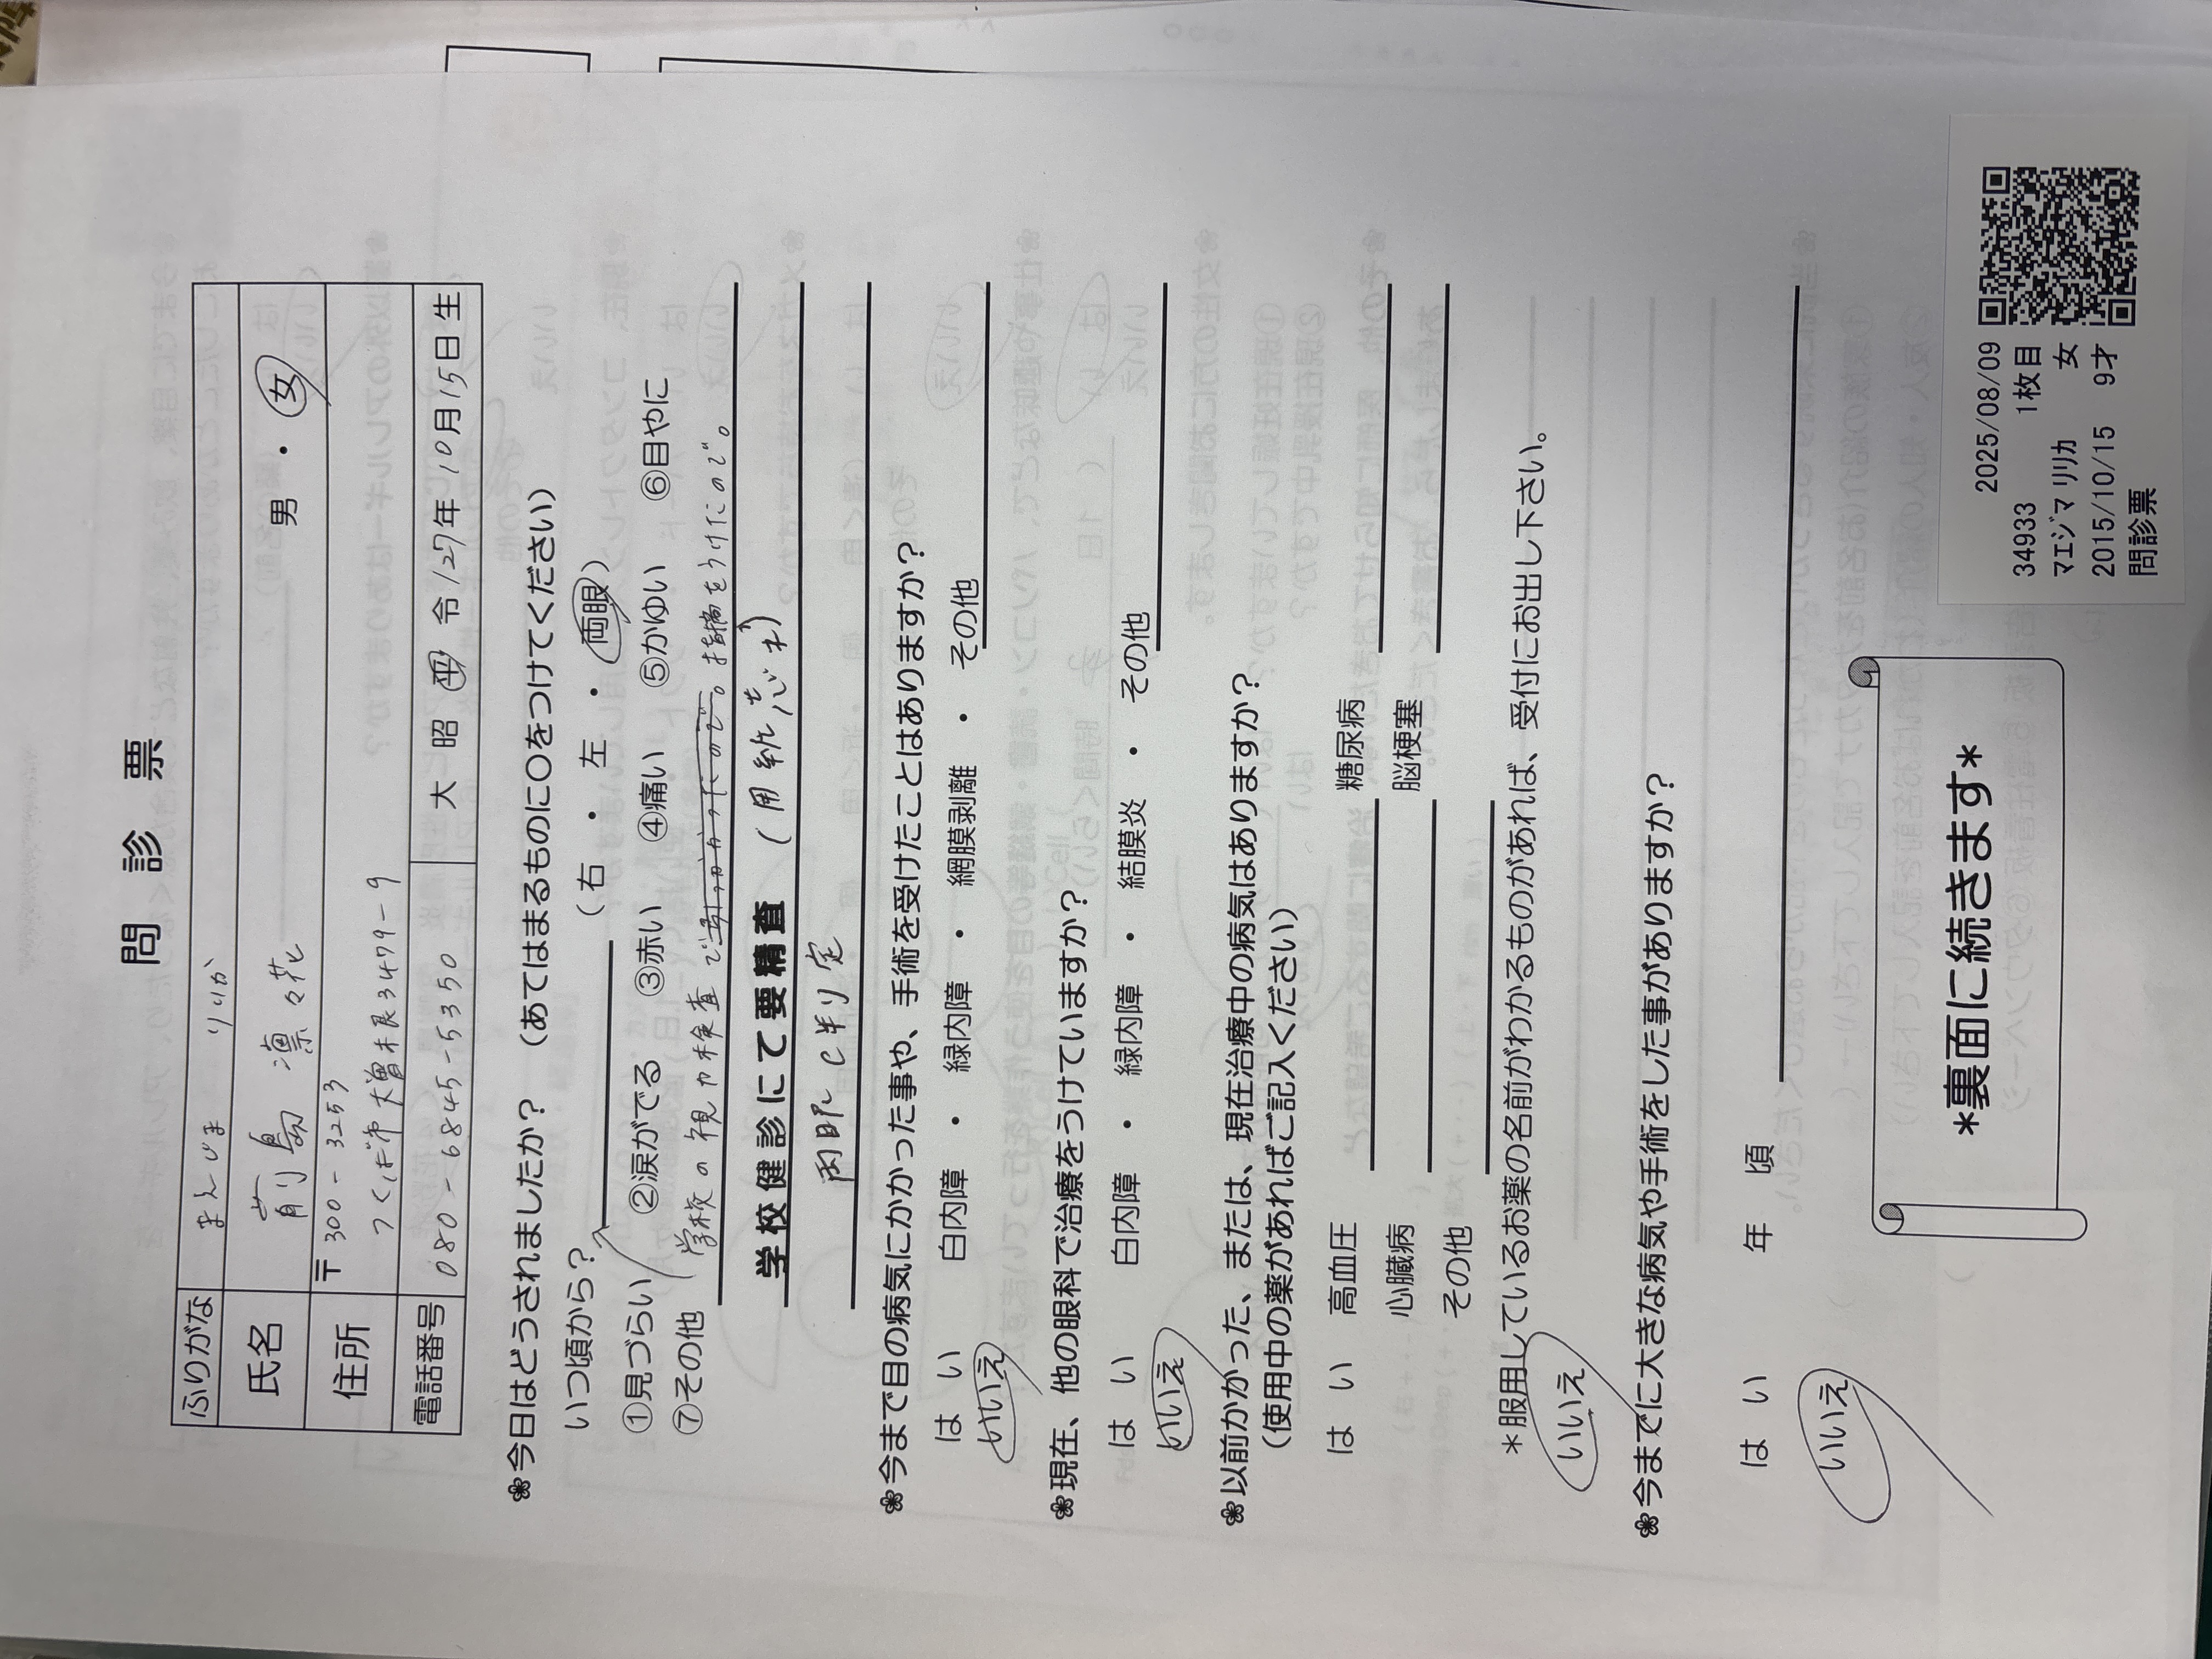 問診票
ふりがな まえじま りりか
氏名 前島 凛々花 男 ・ 女
住所 〒300-3253
つくば市大曽根3479-9
電話番号 080-6845-5350 大 昭 平 令 27年 10月15日生
❀今日はどうされましたか? (あてはまるものに○をつけてください)
いつ頃から? (右 ・ 左 ・ 両眼)
①見づらい ②涙がでる ③赤い ④痛い ⑤かゆい ⑥目やに
⑦その他 学校の視力検査で引っかかったので。指摘をうけたので。
学校健診にて要精査 (用紙忘れ)
両眼C判定
❀今まで目の病気にかかった事や、手術を受けたことはありますか?
はい 白内障 ・ 緑内障 ・ 網膜剥離 ・ その他
いいえ
❀現在、他の眼科で治療をうけていますか?
はい 白内障 ・ 緑内障 ・ 結膜炎 ・ その他
いいえ
❀以前かかった、または、現在治療中の病気はありますか?
(使用中の薬があればご記入ください)
はい 高血圧 糖尿病
心臓病 脳梗塞
その他
*服用しているお薬の名前がわかるものがあれば、受付にお出し下さい。
いいえ
❀今までに大きな病気や手術をした事がありますか?
はい 年 頃
いいえ
*裏面に続きます*
2025/08/09
34933 1枚目
マエジマ リリカ 女
2015/10/15 9才
問診票